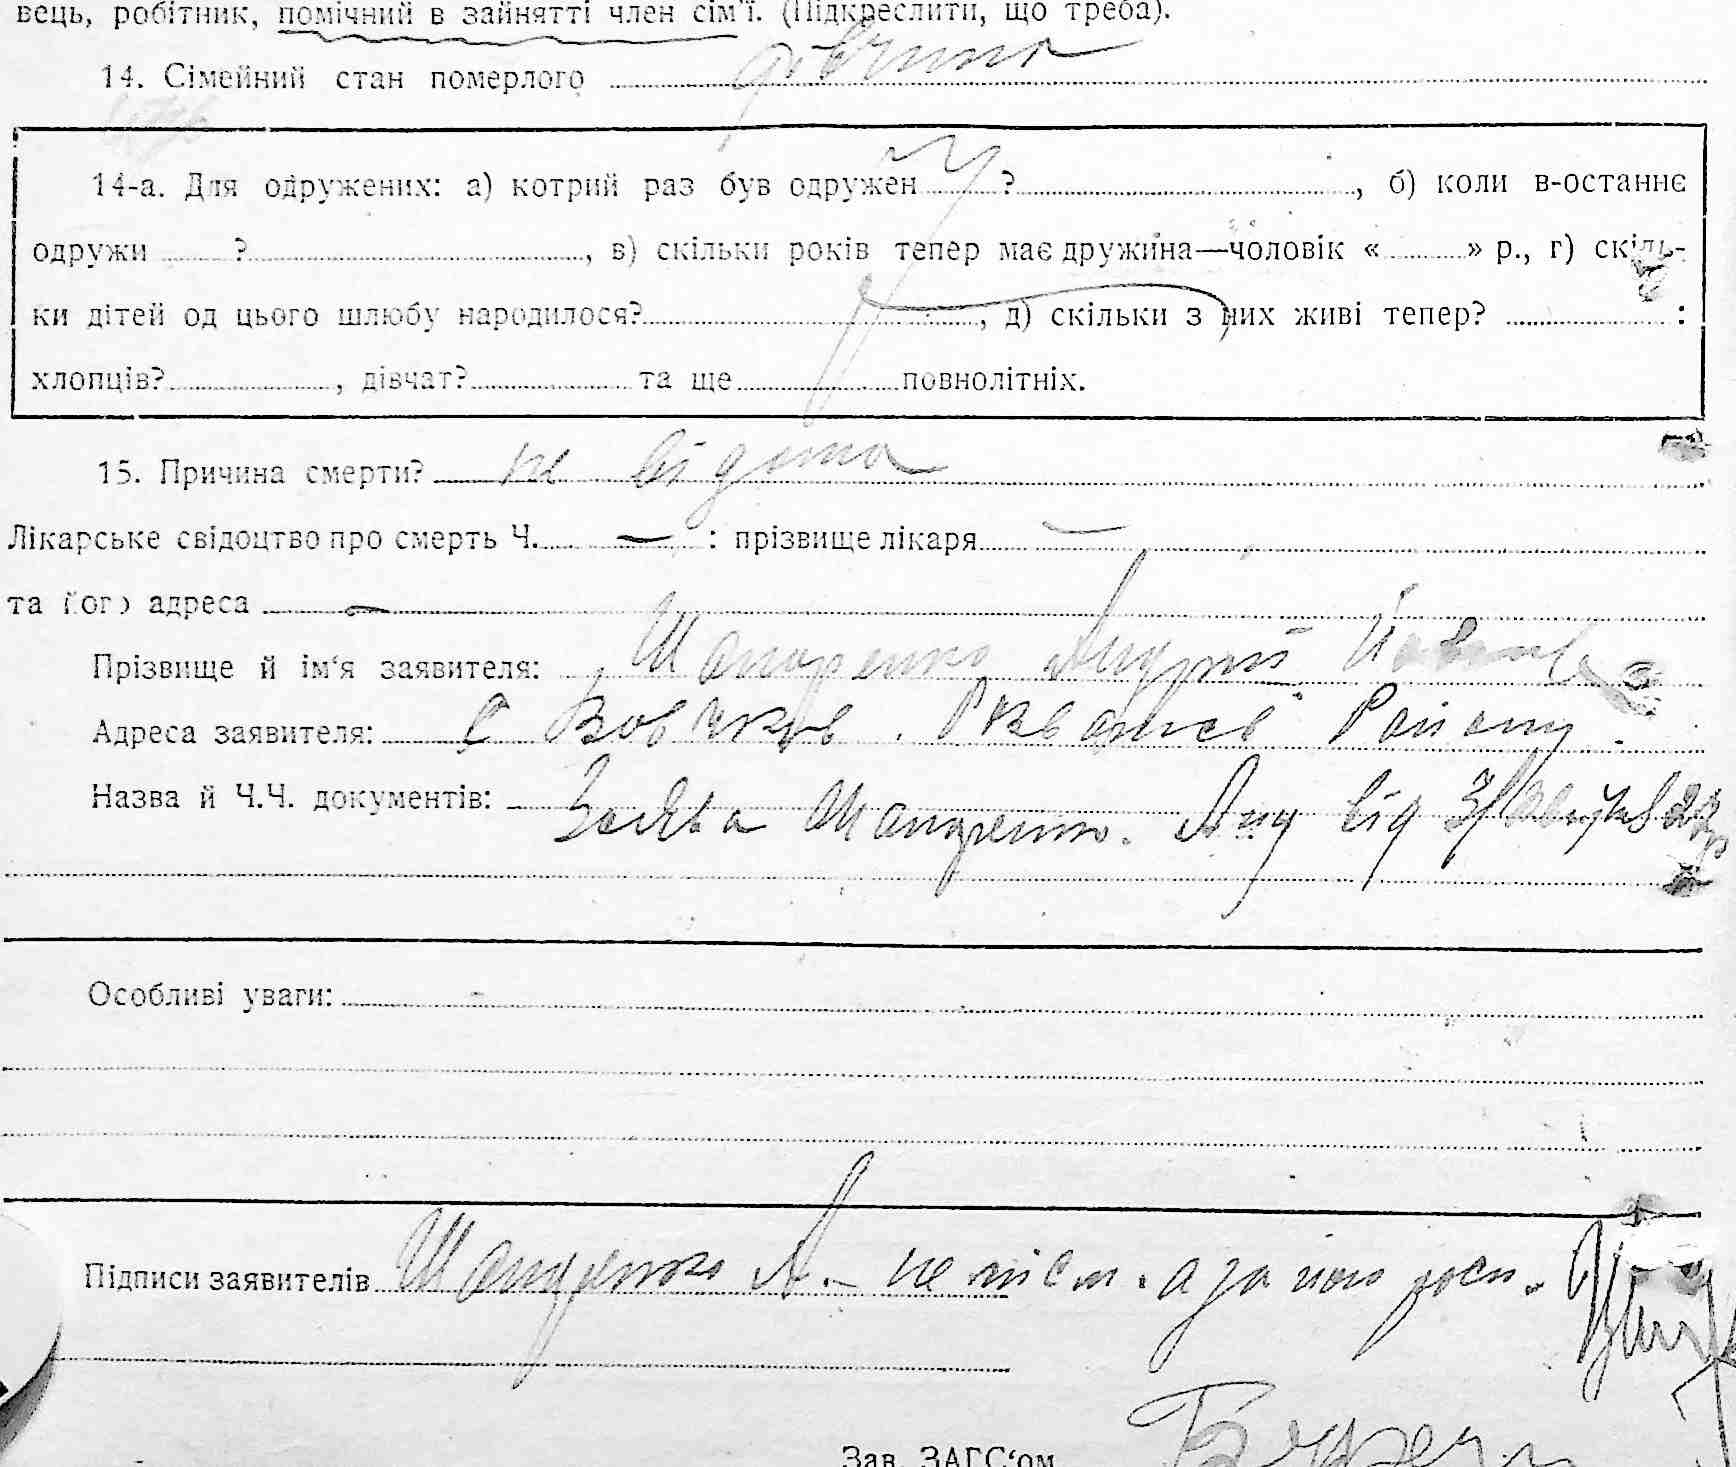 вець, робітник, помічний в зайнятті член сім'ї. (Підкреслити, що треба).
14. Сімейний стан померлого дівчина
14-а. Для одружених: а) котрий раз був одружен ? , б) коли в-останнє
одружи ? , в) скільки років тепер має дружина—чоловік « » р., г) скіль-
ки дітей од цього шлюбу народилося? , д) скільки з них живі тепер? :
хлопців? , дівчат? та ще повнолітніх.
15. Причина смерти? не відома
Лікарське свідоцтво про смерть Ч. — : прізвище лікаря —
та його адреса —
Прізвище й ім'я заявителя: Шапаренко Андрій
Адреса заявителя: С Вовчков. Району.
Назва й Ч.Ч. документів: Заява Анд від
Особливі уваги: -
Підписи заявителів А. — не пісм. а за його росп.
Зав. ЗАГС'ом